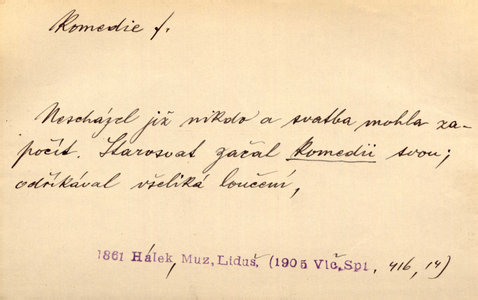 Komedie f.
Nescházel již nikdo a svatba mohla za-
počít. Starosvat začal komedii svou;
odříkával všeliká loučení,
1861 Hálek, Muz. Liduš. (1905 Vlč. Spi , 416, 14)